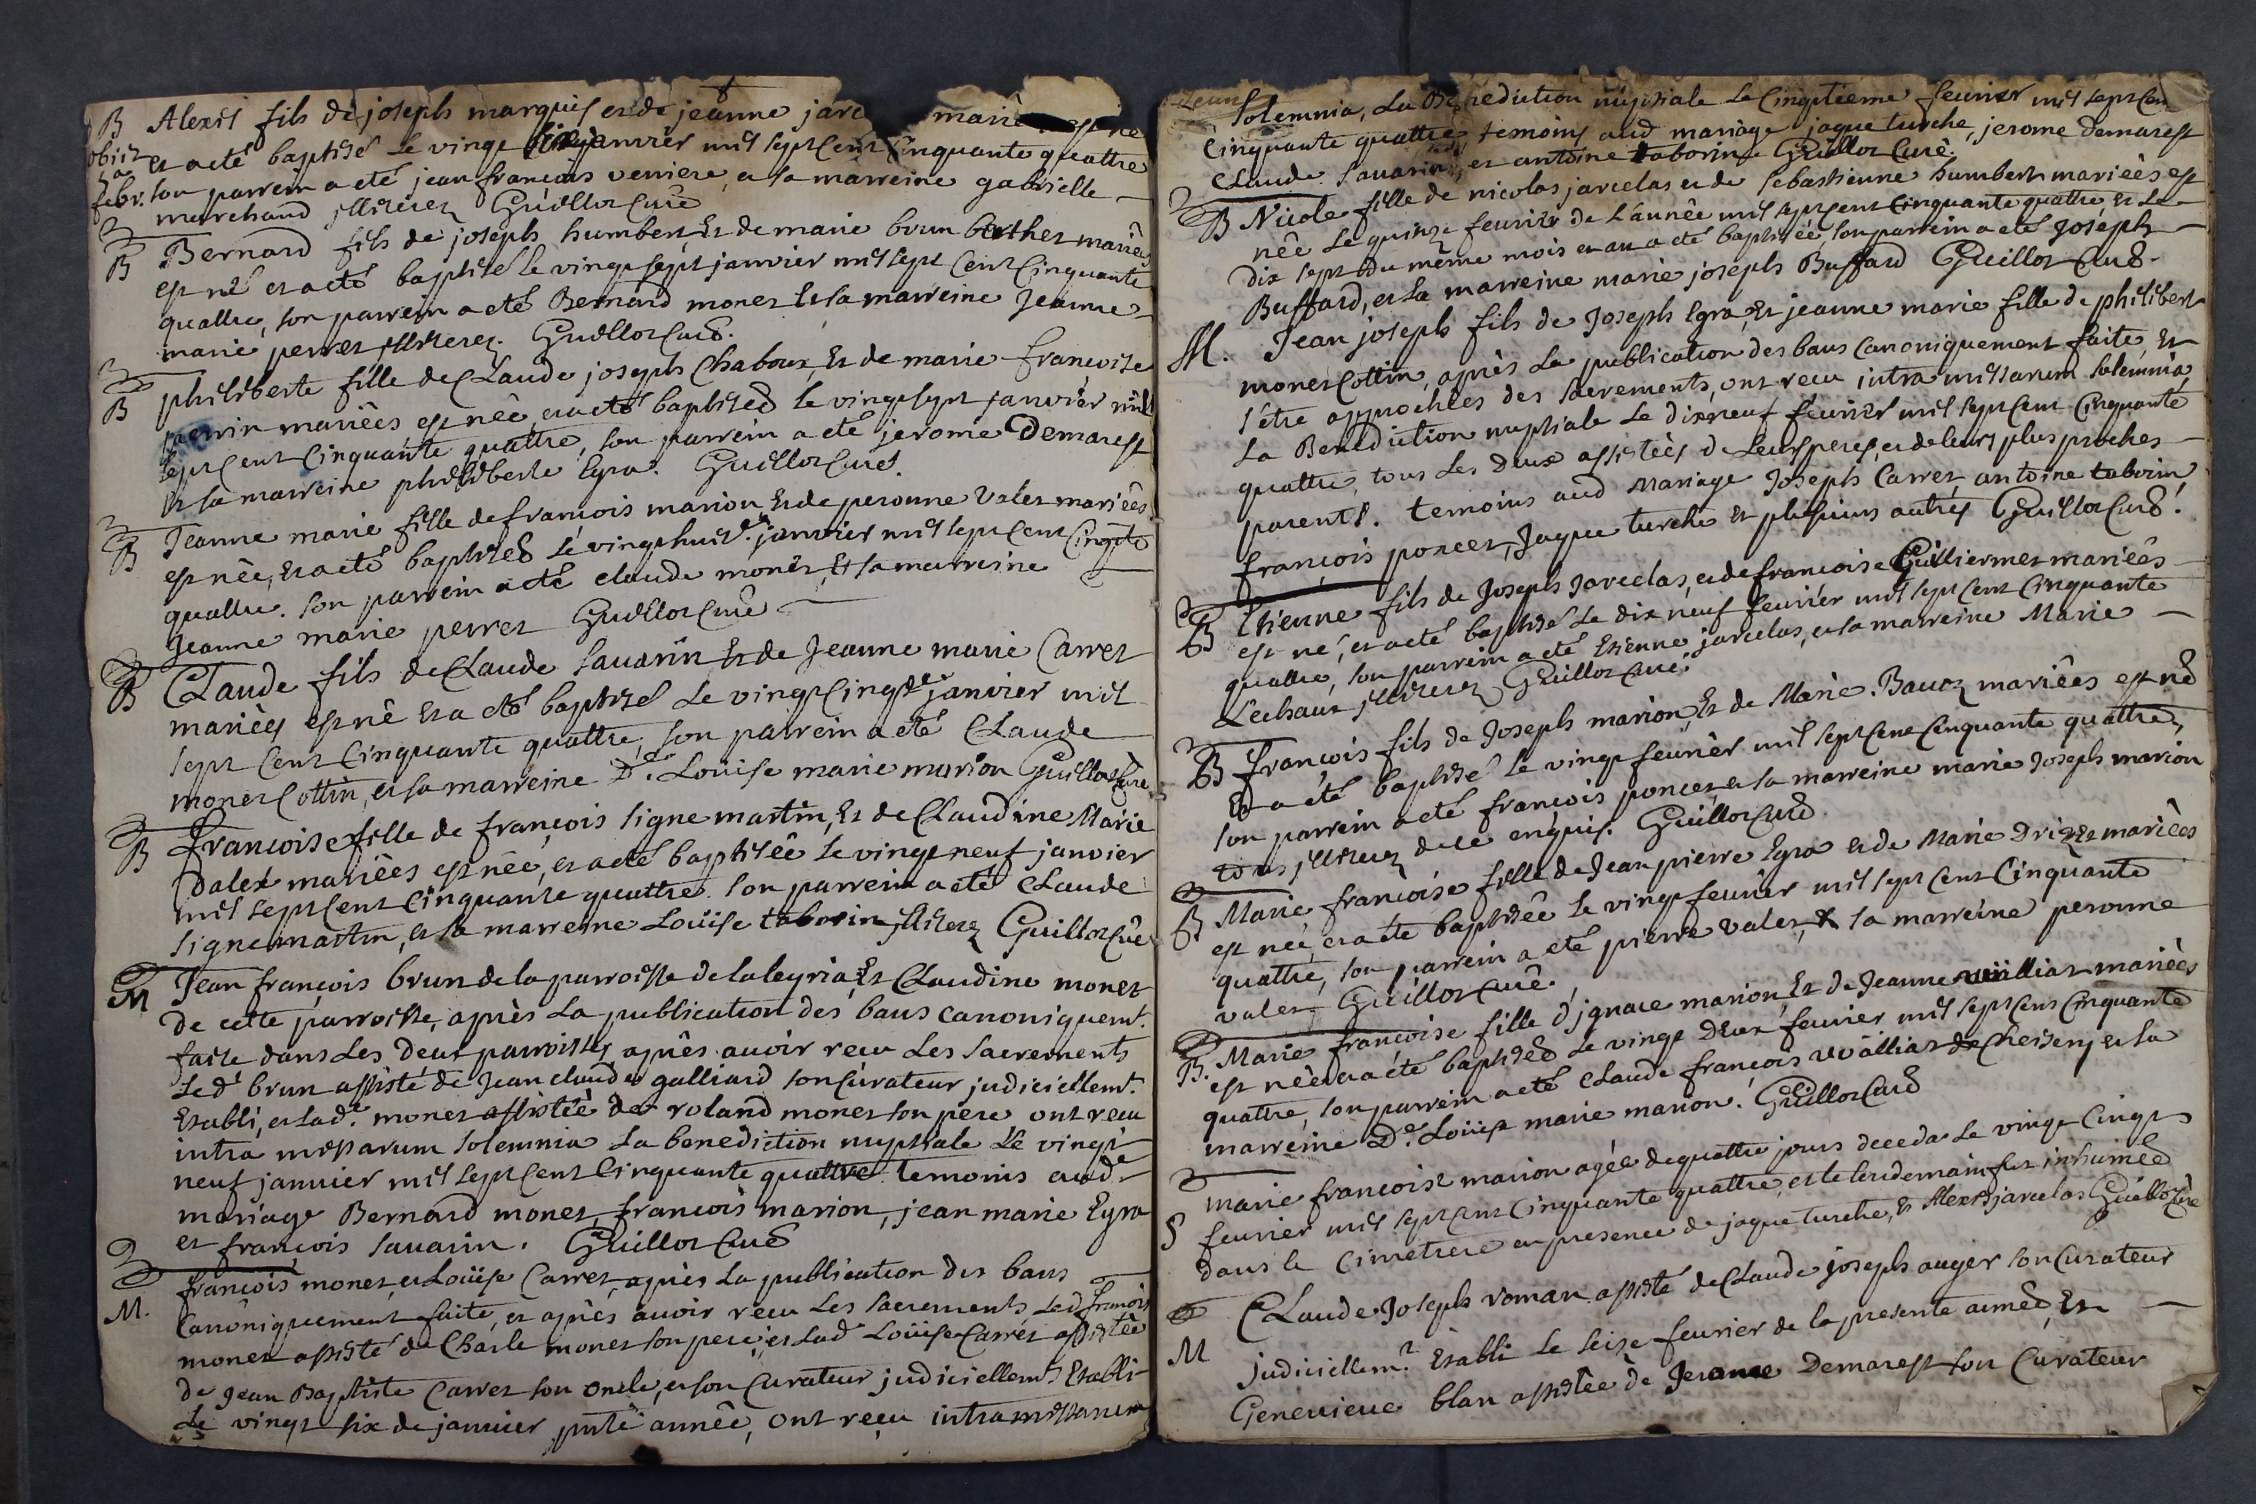 B Alexis fils de joseph marquis et de jeanne jarc mariés est né
obiit et a eté baptisé le vingt janvier mil sept cent cinquante quattre
febr. son parrein a eté jean francois verriere, et sa marreine gabrielle
marchand illiterez Guillot Curé
B Bernard fils de joseph humbert, Et de marie brun berthet mariês
est né et a eté baptisé le vingt sept janvier mil sept Cent Cinquante
quattre, son parrein a eté Bernard monet Et sa marreine Jeanne
marie perret illiterez. Guillot Curé.
B philiberte fille de Claude joseph Chabour, Et de marie francoise
mariêes est nêe, et a eté baptiseé le vingt sept janvier mil
sept Cent Cinquante quattre, son parrein a eté jerome Demarest
Et sa marreine philiberte Egra. Guillot Curé.
B Jeanne marie fille de francois marion Et de peronne Valet mariêes
est nêe, Et a eté baptiseé le vingt huit.e janvier mil sept cent Cinqte
quattre. son parrein a eté claude monet, Et sa marreine
Jeanne marie perret Guillot Curé
B Claude fils de Claude Savarin Et de Jeanne marie Carret
mariêes est nê Et a eté baptisé Le vingt Cinq.e janvier mil
sept Cent Cinquante quattre, son parrein a eté Claude
monet Cottin, et sa marreine D.e Loüise marie marion Guillot Curé
B Francoise fille de françois signe martin, Et de Claudine Marie
dalex mariêes est nêe, et a eté baptisêe le vingt neuf janvier
mil sept Cent Cinquante quattre. son parrein a eté Claude
signe martin, et sa marreine Loüise taborin illiterez Guillot Curé
M Jean françois brun de la parroisse de laleyria, Et Claudine monet
de cette parroisse, après La publication des bans canoniquemt.
faite dans Les Deux parroisses, aprês avoir recu Les sacrements
Led.t brun assisté de Jean claude galliard son curateur judiciellemt.
Etabli, et lad.e monet assistêe de roland monet son pere ont recu
intra missarum solemnia La benediction nuptiale Le vingt
neuf janvier mil sept Cent Cinquante quattre temoins aud.
mariage Bernard monet, françois marion, jean marie Egra
et francois Savarin. Guillot Curé
M. françois monet, et Loüise Carret, après La publication des bans
Canôniquement faite, et aprês avoir recu Les sacrements Led. françois
monet assisté de Charle monet son pere, et lad. Loüise Carret assistêe
de Jean Baptiste Carret son oncle, et son Curateur judiciellemt. Etabli
Le vingt six de janvier, pnte annêe, ont reçu intra missarum
solemnia, La Benediction nuptiale Le Cinqtieme fevrier mil sept Cent
Cinquante quattre temoins aud mariage jaque turche, jerome demarest
Claude Savarin, et antoine taborin Guillot Curé.
B Nicole fille de nicolas jarcelas et de sebastienne humbert mariêês est
nêe Le quinze fevrier de L'annêe mil sept cent Cinquante quattre, Et Le
dix sept du même mois et an a eté baptisée, son parrein a eté Joseph
Buffard, et sa marreine marie joseph Buffard Guillot Curé.
M. Jean joseph fils de Joseph Egra, Et jeanne marie fille de philibert
monet Cottin, aprês La publication des bans Canoniquement faite, Et
s'être approchêes des sacrements, ont recu intra missarum solemnia
La Benediction nuptiale Le dix neuf fevrier mil sept Cent Cinquante
quattre, tous Les Deux assistêes de Leurs peres, et de leurs plus proches
parents. temoins aud Mariage Joseph Carret, antoine taborin,
françois poncet, Jaque turche et plusieurs autres Guillot Curé.
B Etienne fils de Joseph Jarcelas, et de francoise Guilliermet mariêês
est né, et a eté baptisé Le dix neuf fevrier mil sept cent Cinquante
quattre, son parrein a eté Etienne jarcelas, et sa marreine Marie
Lechaux illiterez Guillot Curé.
B François fils de Joseph marion, Et de Marie Bavoz mariêês est né
Et a été baptisé Le vingt fevrier mil sept Cent Cinquante quattre,
son parrein a eté françois poncet, et sa marreine marie Joseph marion
tous illiterez de ce enquis. Guillot Curé
B Marie françoise fille de Jean pierre Egra et de Marie Drizet mariêes
est nêe, et a eté baptisêe Le vingt fevrier mil sept Cent Cinquante
quattre, son parrein a eté pierre valet, & sa marreine peronne
valet Guillot Curé.
B. Marie françoise fille d'ignace marion, Et de Jeanne vuilliar mariêes
est nêe et a eté baptiseé Le vingt Deux fevrier mil sept Cens Cinquante
quattre, son parrein a eté Claude françois vuilliar de Cheisery et sa
marreine D.e Loüise marie marion. Guillot Curé
S marie françoise marion agée de quattre jours deceda Le vingt Cinq
fevrier mil sept cent Cinquante quattre, et le lendemain fut inhumée
dans le Cimetiere en presence de jaque turche, Et Alexis jarcelas Guillot Curé
M Claude Joseph roman assisté de Claude joseph auger son Curateur
judiciellem.t Etabli Le seize fevrier de la presente anneé, Et
Genevieve blan assistêe de Jerome Demarest son Curateur